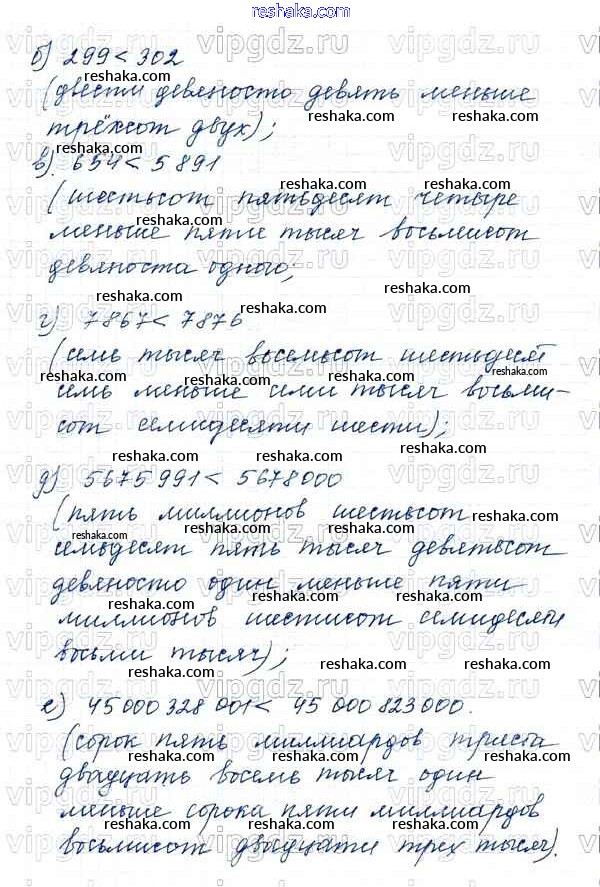 reshaka.com
б) 299 < 302
(двести девяносто девять меньше
трёхсот двух);
в) 654 < 5 891
(шестьсот пятьдесят четыре
меньше пяти тысяч восьмисот
девяноста одного;
г) 7867 < 7876
(семь тысяч восемьсот шестьдесят
семь меньше семи тысяч восьми-
сот семидесяти шести);
д) 5675 991 < 5678 000
(пять миллионов шестьсот
семьдесят пять тысяч девятьсот
девяносто один меньше пяти
миллионов шестисот семидесяти
восьми тысяч);
е) 45 000 328 001 < 45 000 823 000.
(сорок пять миллиардов триста
двадцать восемь тысяч один
меньше сорока пяти миллиардов
восьмисот двадцати трех тысяч).